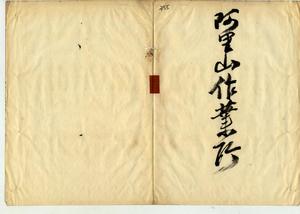 阿里山作業所